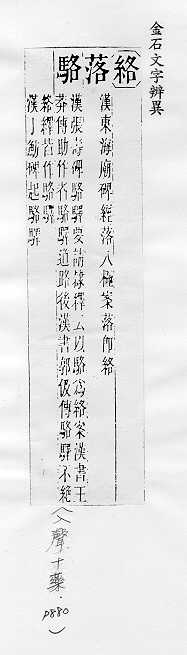 金石文字辨異
絡落駱
漢東海廟碑經落八極案落卽絡
漢張壽碑駱驛要請隸釋云以駱爲絡案漢書王
莽傳助作者駱驛道路後漢書郭伋傳駱驛不絕
絡繹皆作駱驛
漢丁魴碑起駱驛
(入聲十藥.
p880)